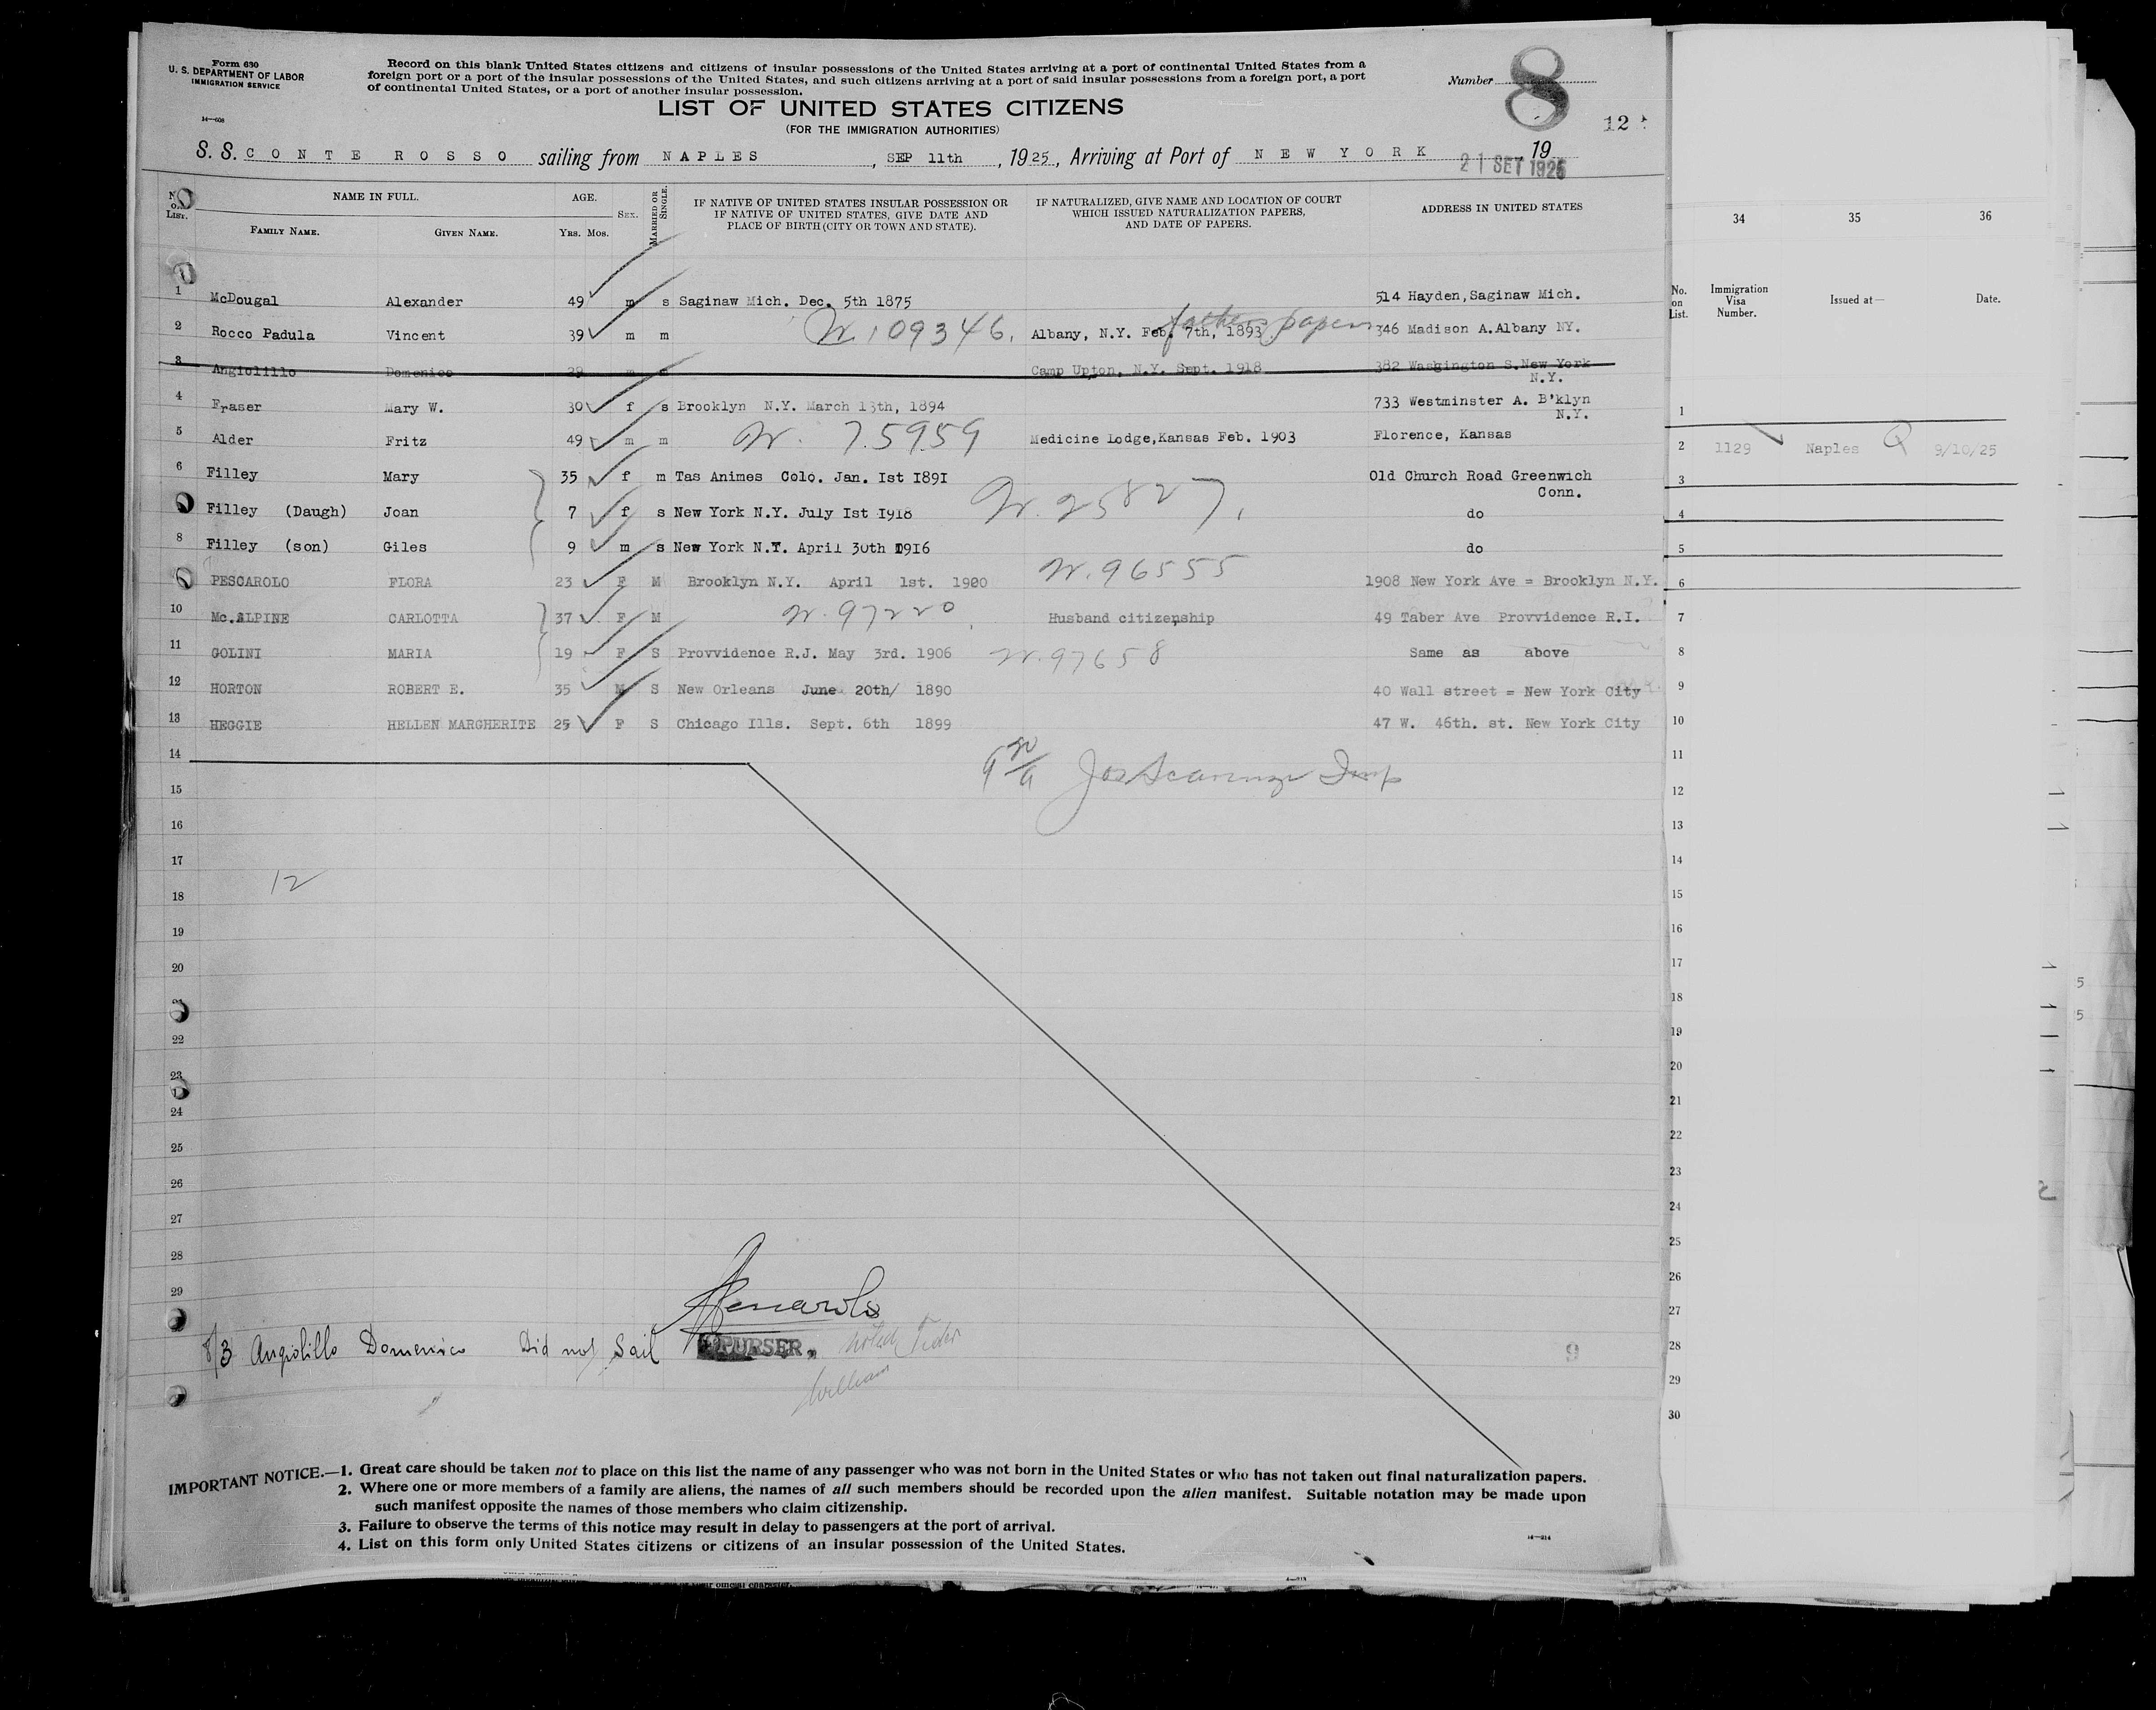 Form 630
U. S. DEPARTMENT OF LABOR
IMMIGRATION SERVICE
14—608
Record on this blank United States citizens and citizens of insular possessions of the United States arriving at a port of continental United States from a
foreign port or a port of the insular possessions of the United States, and such citizens arriving at a port of said insular possessions from a foreign port, a port
of continental United States, or a port of another insular possession.
Number 8
12
LIST OF UNITED STATES CITIZENS
(FOR THE IMMIGRATION AUTHORITIES)
S. S. CONTE ROSSO sailing from NAPLES, SEP 11th, 1925, Arriving at Port of NEW YORK, 19
21 SET 1925
No. on List. NAME IN FULL. FAMILY NAME. GIVEN NAME. AGE. Yrs. Mos. SEX. MARRIED OR SINGLE.
IF NATIVE OF UNITED STATES INSULAR POSSESSION OR
IF NATIVE OF UNITED STATES, GIVE DATE AND
PLACE OF BIRTH (CITY OR TOWN AND STATE).
IF NATURALIZED, GIVE NAME AND LOCATION OF COURT
WHICH ISSUED NATURALIZATION PAPERS,
AND DATE OF PAPERS.
ADDRESS IN UNITED STATES
1 McDougal Alexander 49 m s Saginaw Mich. Dec. 5th 1875 514 Hayden, Saginaw Mich.
2 Rocco Padula Vincent 39 m m N. 109346. Albany, N.Y. Feb. 7th, 1893 fathers papers 346 Madison A. Albany NY.
3 Angiolillo Domenico 39 m m Camp Upton, N.Y. Sept. 1918 382 Wasgington S. New York
N.Y.
4 Fraser Mary W. 30 f s Brooklyn N.Y. March 13th, 1894 733 Westminster A. B'klyn
N.Y.
5 Alder Fritz 49 m m N. 75959 Medicine Lodge, Kansas Feb. 1903 Florence, Kansas
6 Filley Mary 35 f m Tas Animes Colo. Jan. 1st 1891 Old Church Road Greenwich
Conn.
Filley (Daugh) Joan 7 f s New York N.Y. July 1st 1918 N. 25827. do
8 Filley (son) Giles 9 m s New York N.Y. April 30th 1916 do
PESCAROLO FLORA 23 F M Brooklyn N.Y. April 1st. 1900 N. 96555 1908 New York Ave = Brooklyn N.Y.
10 Mc.ALPINE CARLOTTA 37 F M N. 97220 Husband citizenship 49 Taber Ave Provvidence R.I.
11 GOLINI MARIA 19 F S Provvidence R.J. May 3rd. 1906 N. 97658 Same as above
12 HORTON ROBERT E. 35 M S New Orleans June 20th/ 1890 40 Wall street = New York City
13 HEGGIE HELLEN MARGHERITE 25 F S Chicago Ills. Sept. 6th 1899 47 W. 46th. st. New York City
14
15
16
17
12
18
19
20
22
23
24
25
26
27
28
29
3 Angiolillo Domenico Did not Sail
PURSER.
William
9
IMPORTANT NOTICE.—1. Great care should be taken not to place on this list the name of any passenger who was not born in the United States or who has not taken out final naturalization papers.
2. Where one or more members of a family are aliens, the names of all such members should be recorded upon the alien manifest. Suitable notation may be made upon
such manifest opposite the names of those members who claim citizenship.
3. Failure to observe the terms of this notice may result in delay to passengers at the port of arrival.
4. List on this form only United States citizens or citizens of an insular possession of the United States.
14—314
34 35 36
No. on List. Immigration Visa Number. Issued at— Date.
1
2 1129 Naples 9/10/25
3
4
5
6
7
8
9
10
11
12
13
14
15
16
17
18
19
20
21
22
23
24
25
26
27
28
29
30
5
5